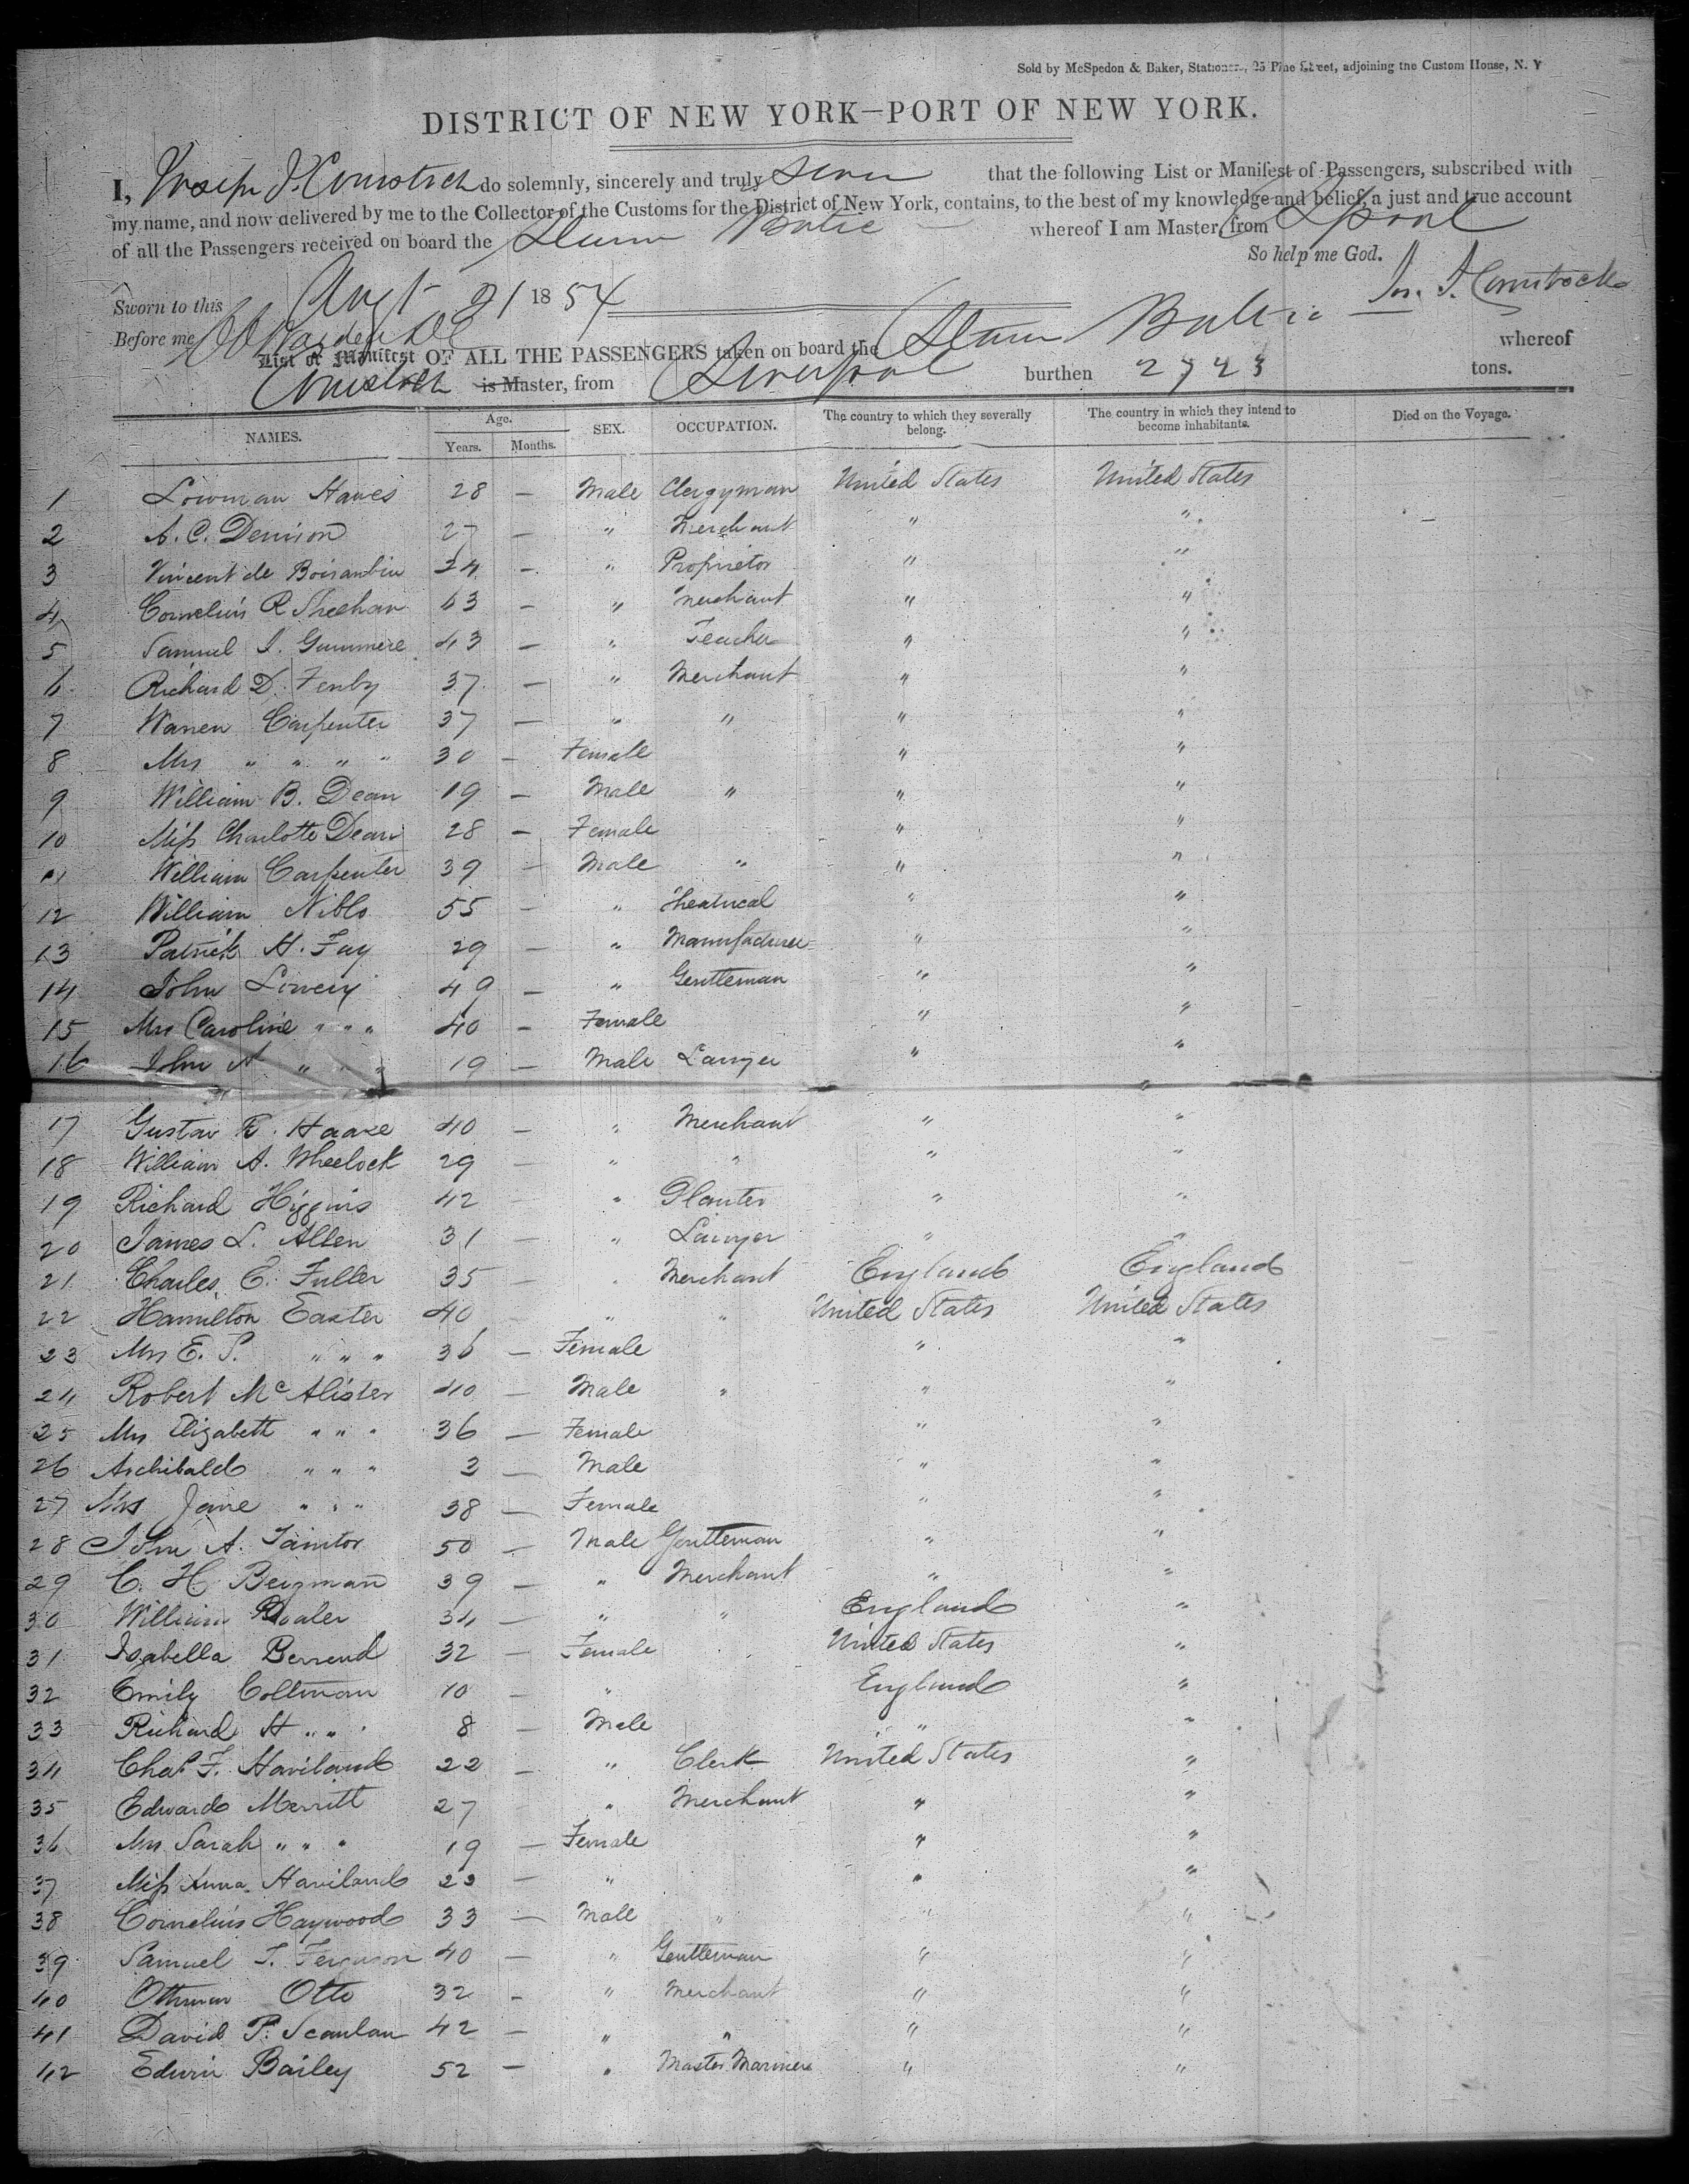 Sold by McSpedon & Baker, Stationers, 25 Pine Street, adjoining the Custom House, N. Y
DISTRICT OF NEW YORK—PORT OF NEW YORK.
I, Joseph J. Comstock do solemnly, sincerely and truly swear that the following List or Manifest of Passengers, subscribed with
my name, and now delivered by me to the Collector of the Customs for the District of New York, contains, to the best of my knowledge and belief, a just and true account
of all the Passengers received on board the Steamer Baltic whereof I am Master, from L'pool
So help me God.
Sworn to this Augt 21 1854 Jos. J. Comstock
Before me
List or Manifest OF ALL THE PASSENGERS taken on board the Steamer Baltic whereof
Comstock is Master, from Liverpool burthen 2723 tons.
NAMES. Age. Years. Months. SEX. OCCUPATION. The country to which they severally belong. The country in which they intend to become inhabitants. Died on the Voyage.
1 Lowman Hawes 28 — Male Clergyman United States United States
2 A. C. Denison 27 — " Merchant " "
3 Vincent de Boisaubin 24 — " Proprietor " "
4 Cornelius R Sheehan 43 — " Merchant " "
5 Samuel J. Gummere 43 — " Teacher " "
6 Richard D. Fenby 37 — " Merchant " "
7 Warren Carpenter 37 — " " " "
8 Mrs " " " " 30 — Female " "
9 William B. Dean 19 — Male " " "
10 Miss Charlotte Dean 28 — Female " "
11 William Carpenter 39 — Male " " "
12 William Niblo 55 — " Theatrical " "
13 Patrick H. Fay 29 — " Manufacturer " "
14 John Lowery 49 — " Gentleman " "
15 Mrs Caroline " " " 40 — Female " "
16 John A " " " 19 — Male Lawyer " "
17 Gustav E. Haake 40 — " Merchant " "
18 William A. Wheelock 29 — " " " "
19 Richard Higgins 42 — " Planter " "
20 James L. Allen 31 — " Lawyer " "
21 Charles E. Fuller 35 — " Merchant England England
22 Hamilton Easter 40 — " " United States United States
23 Mrs E. S. " " " 36 — Female " "
24 Robert McAlister 40 — Male " " "
25 Mrs Elizabeth " " " 36 — Female " "
26 Archibald " " " 3 — Male " "
27 Mrs Jane " " " 38 — Female " "
28 John A. Taintor 50 — Male Gentleman " "
29 C. H. Bergman 39 — " Merchant " "
30 William 34 — " " England "
31 Isabella Berrend 32 — Female United States "
32 Emily Collman 10 — " England "
33 Richard H " " " 8 — Male " "
34 Chas. F. Haviland 22 — " Clerk United States "
35 Edward Merritt 27 — " Merchant " "
36 Mrs Sarah " " " 19 — Female " "
37 Miss Anna Haviland 23 — " " "
38 Cornelius Haywood 33 — Male " " "
39 Samuel T. Ferguson 40 — " Gentleman " "
40 Otto 32 — " Merchant " "
41 David P. Scanlan 42 — " " " "
42 Edwin Bailey 52 — " Master Mariner " "